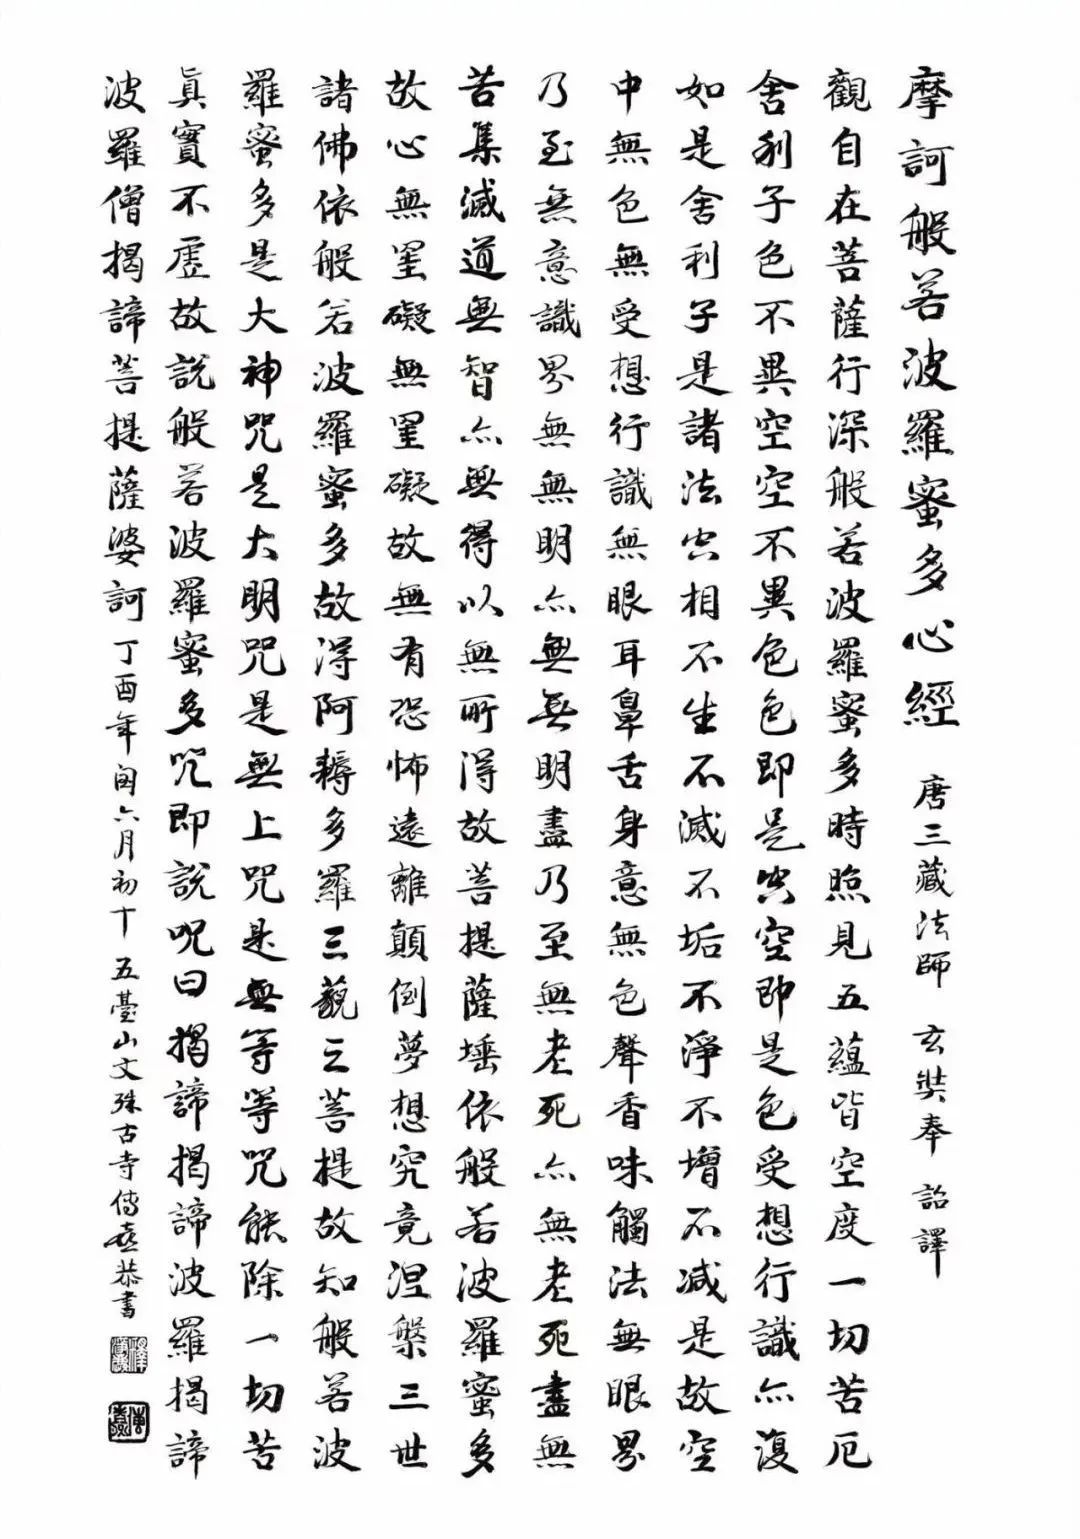 摩訶般若波羅蜜多心經 唐三藏法師 玄奘奉 詔譯
觀自在菩薩行深般若波羅蜜多時照見五蘊皆空度一切苦厄
舍利子色不異空空不異色色即是空空即是色受想行識亦復
如是舍利子是諸法空相不生不滅不垢不淨不增不减是故空
中無色無受想行識無眼耳鼻舌身意無色聲香味觸法無眼界
乃至無意識界無無明亦無無明盡乃至無老死亦無老死盡無
苦集滅道無智亦無得以無所得故菩提薩埵依般若波羅蜜多
故心無罣礙無罣礙故無有恐怖遠離顛倒夢想究竟涅槃三世
諸佛依般若波羅蜜多故得阿耨多羅三藐三菩提故知般若波
羅蜜多是大神咒是大明咒是無上咒是無等等咒能除一切苦
眞實不虛故說般若波羅蜜多咒即說呪曰揭諦揭諦波羅揭諦
波羅僧揭諦菩提薩婆訶 丁酉年閏六月初十 五臺山文殊古寺傳恭書